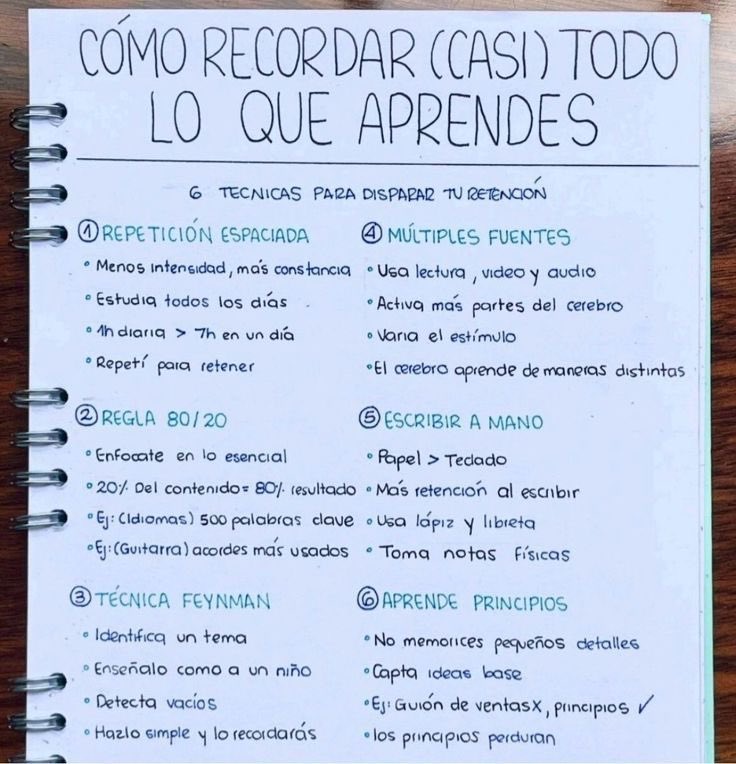 CÓMO RECORDAR (CASI) TODO
LO QUE APRENDES
6 TECNICAS PARA DISPARAR TU RETENCIÓN
1 REPETICIÓN ESPACIADA
° Menos intensidad, más constancia
° Estudia todos los días
° 1h diaria > 7h en un día
° Repetí para retener
2 REGLA 80/20
° Enfocate en lo esencial
° 20% Del contenido = 80% resultado
° Ej: (Idiomas) 500 palabras clave
° Ej: (Guitarra) acordes más usados
3 TÉCNICA FEYNMAN
° Identifica un tema
° Enseñalo como a un niño
° Detecta vacíos
° Hazlo simple y lo recordarás
4 MÚLTIPLES FUENTES
° Usa lectura, video y audio
° Activa más partes del cerebro
° Varia el estímulo
° El cerebro aprende de maneras distintas
5 ESCRIBIR A MANO
° Papel > Teclado
° Más retención al escribir
° Usa lápiz y libreta
° Toma notas físicas
6 APRENDE PRINCIPIOS
° No memorices pequeños detalles
° Capta ideas base
° Ej: Guión de ventas X, principios ✓
° los principios perduran